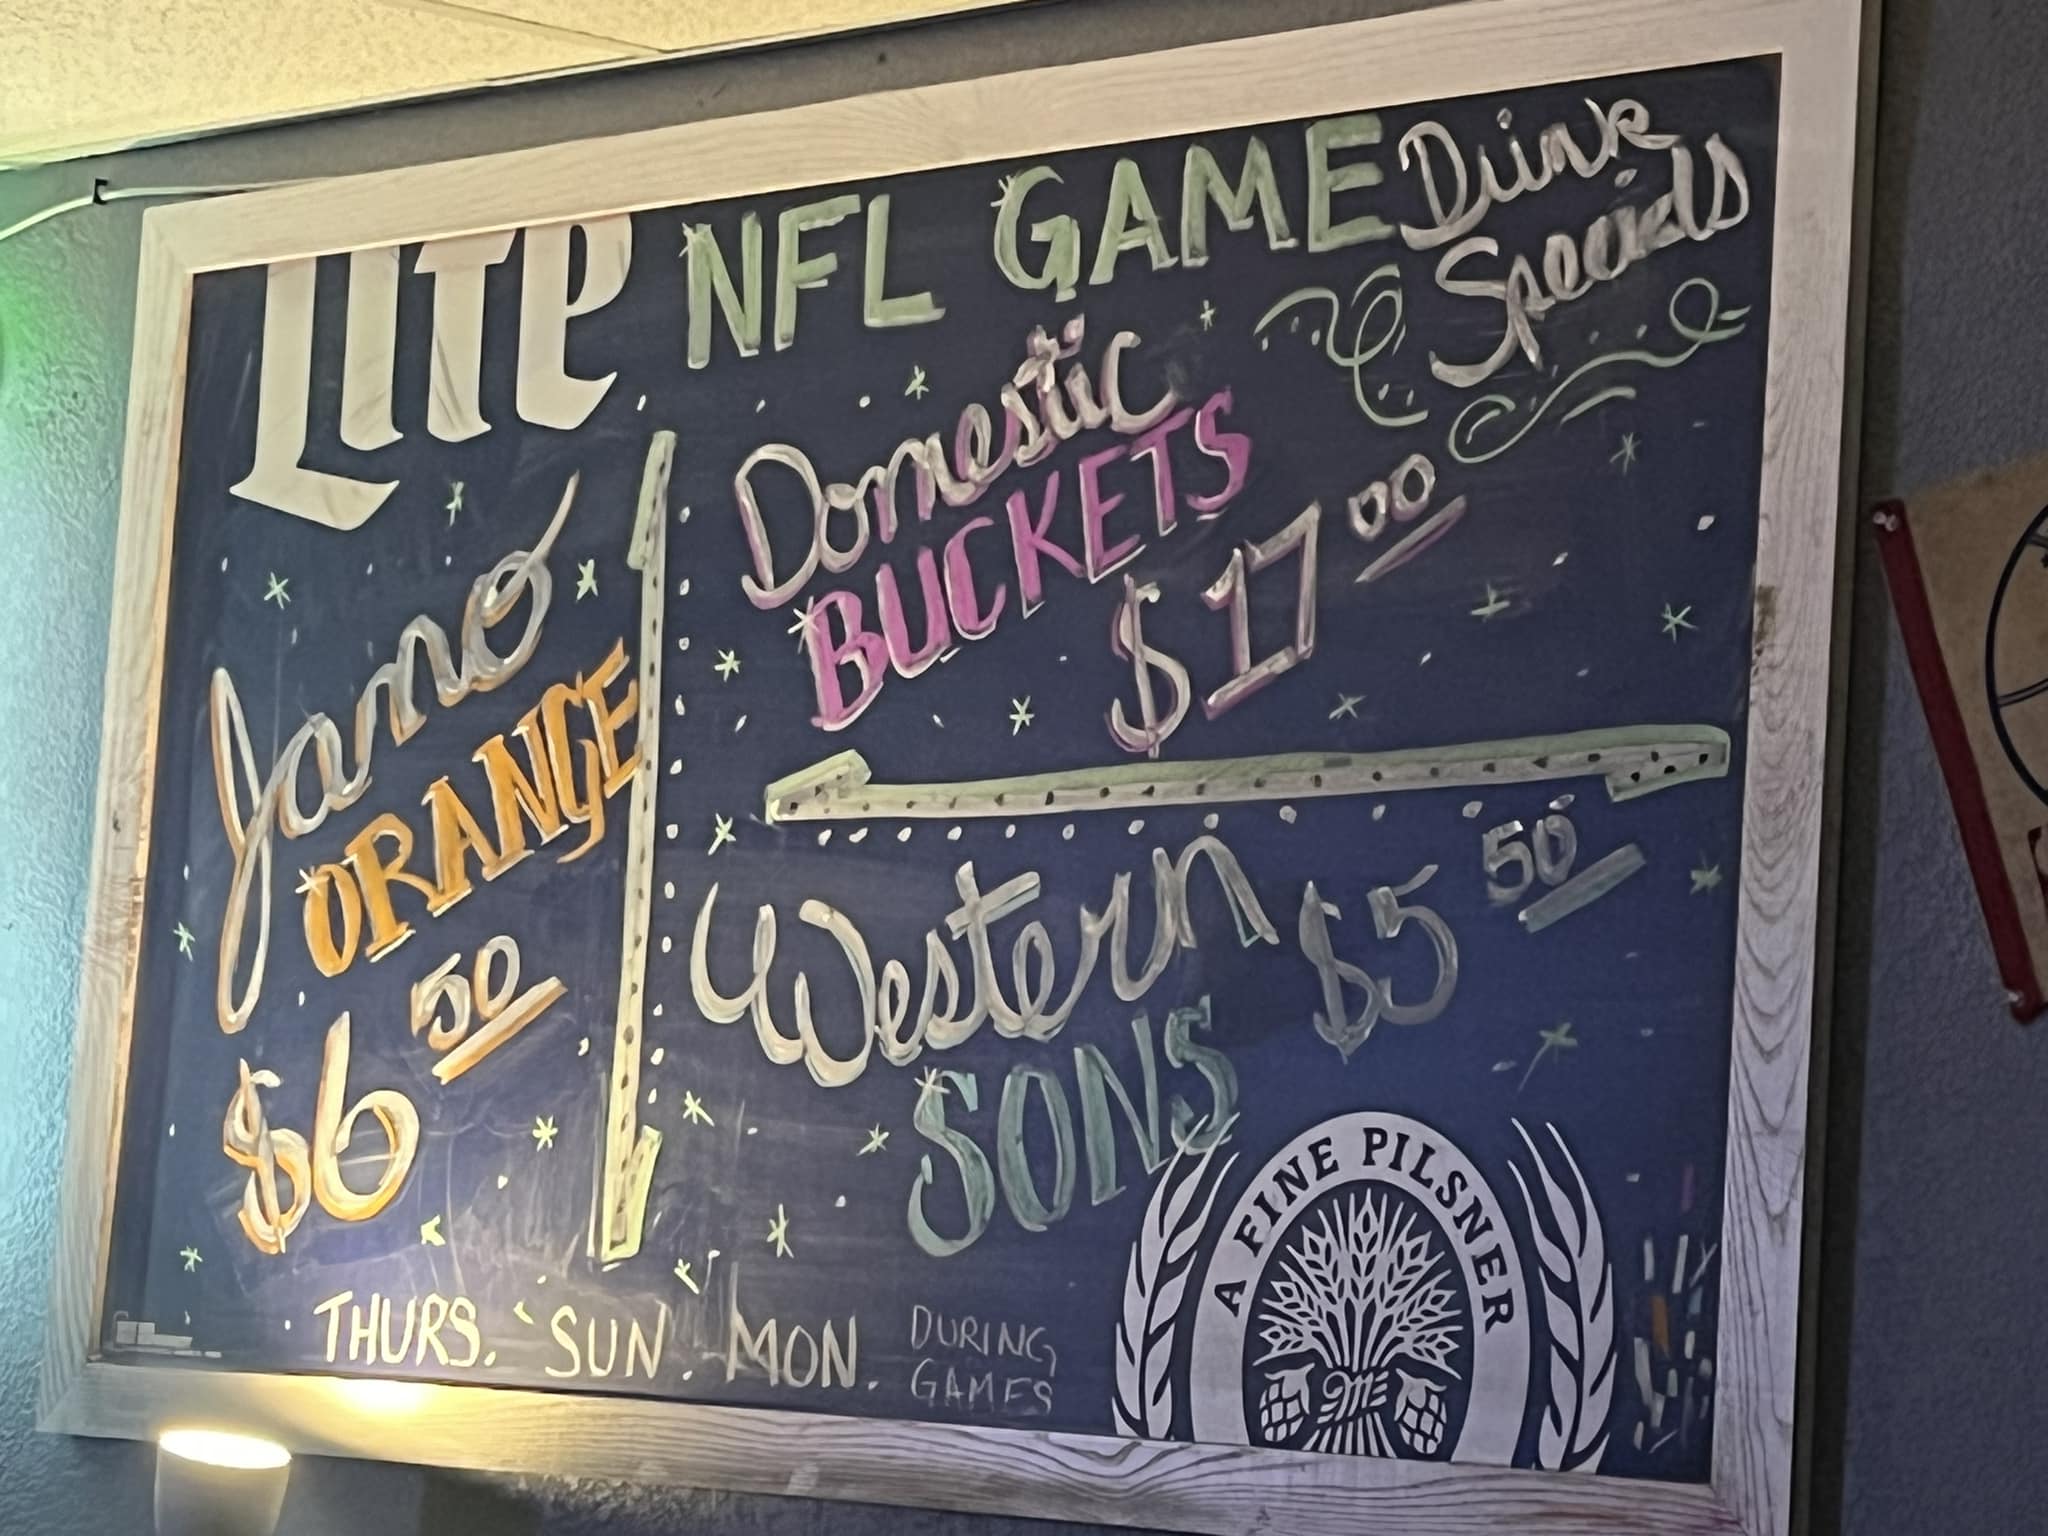 Lite
NFL GAME Drink
Specials
Domestic
BUCKETS
$17.00
Jameo
ORANGE
$6 50
Western $5 50
SONS
A FINE PILSNER
THURS. SUN. MON. DURING
GAMES